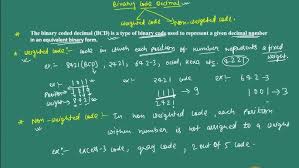 Binary Code Decimal
weighted code
non-weighted code.
* The binary coded decimal (BCD) is a type of binary code used to represent a given decimal number
in an equivalent binary form.
* weighted code :- code in which each position of number represents a fixed weight.
ex:- 8421 (BCD) , 2421, 642-3, 2421
ex:- 8421
1001 → 9
ex:- 2421 code
1111
2+4+2+1
9
ex:- 642-3
1001 → 3
* Non-weighted code :- In non weighted code, each position
within number is not assigned to a weight
ex:- excess-3 code, gray code, 2 out of 5 code.